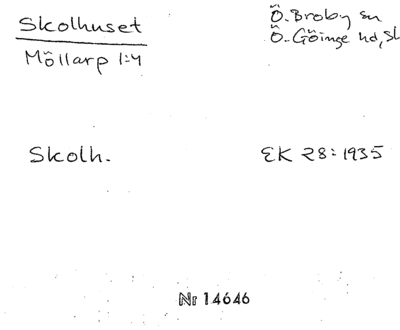 Skolhuset
Möllarp 1:4
Ö. Broby sn
Ö. Göinge hd, Sk
Skolh.
EK 28:1935
Nr 14646